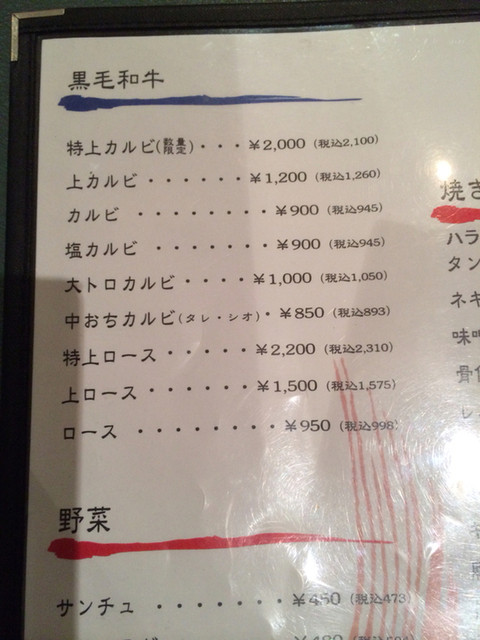 黒毛和牛
特上カルビ(数量限定)・・・¥2,000（税込2,100）
上カルビ・・・・・・¥1,200（税込1,260）
カルビ・・・・・・・・¥900（税込945）
塩カルビ・・・・・・・¥900（税込945）
大トロカルビ・・・・¥1,000（税込1,050）
中おちカルビ(タレ・シオ)・¥850（税込893）
特上ロース・・・・・¥2,200（税込2,310）
上ロース・・・・・・¥1,500（税込1,575）
ロース・・・・・・・・¥950（税込998）
野菜
サンチュ・・・・・・・¥450（税込473
焼き
ハラ
タン
ネギ
味噌
骨付